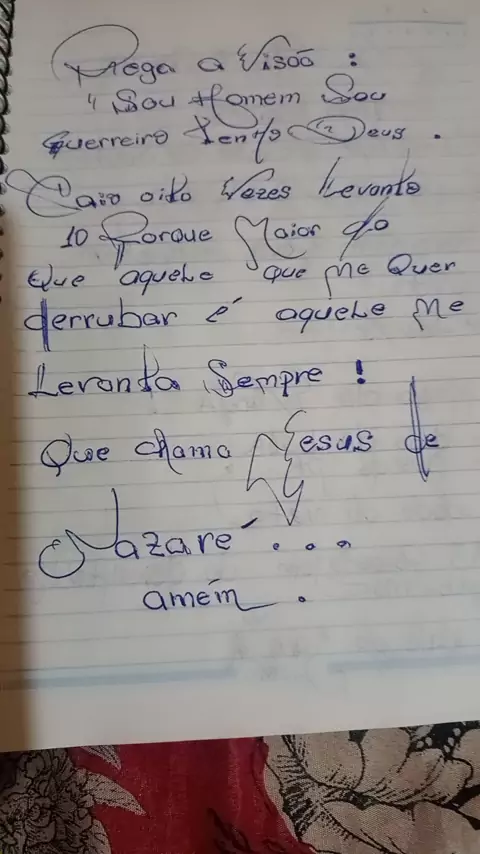 Pega a Visão :
" Sou Homem Sou
guerreiro tenho Deus .
Caio oito Vezes Levanto
10 Porque Maior do
Que aquele que Me Quer
derrubar é aquele Me
Levanta Sempre !
Que chama Jesus de
Nazaré . . .
amém .